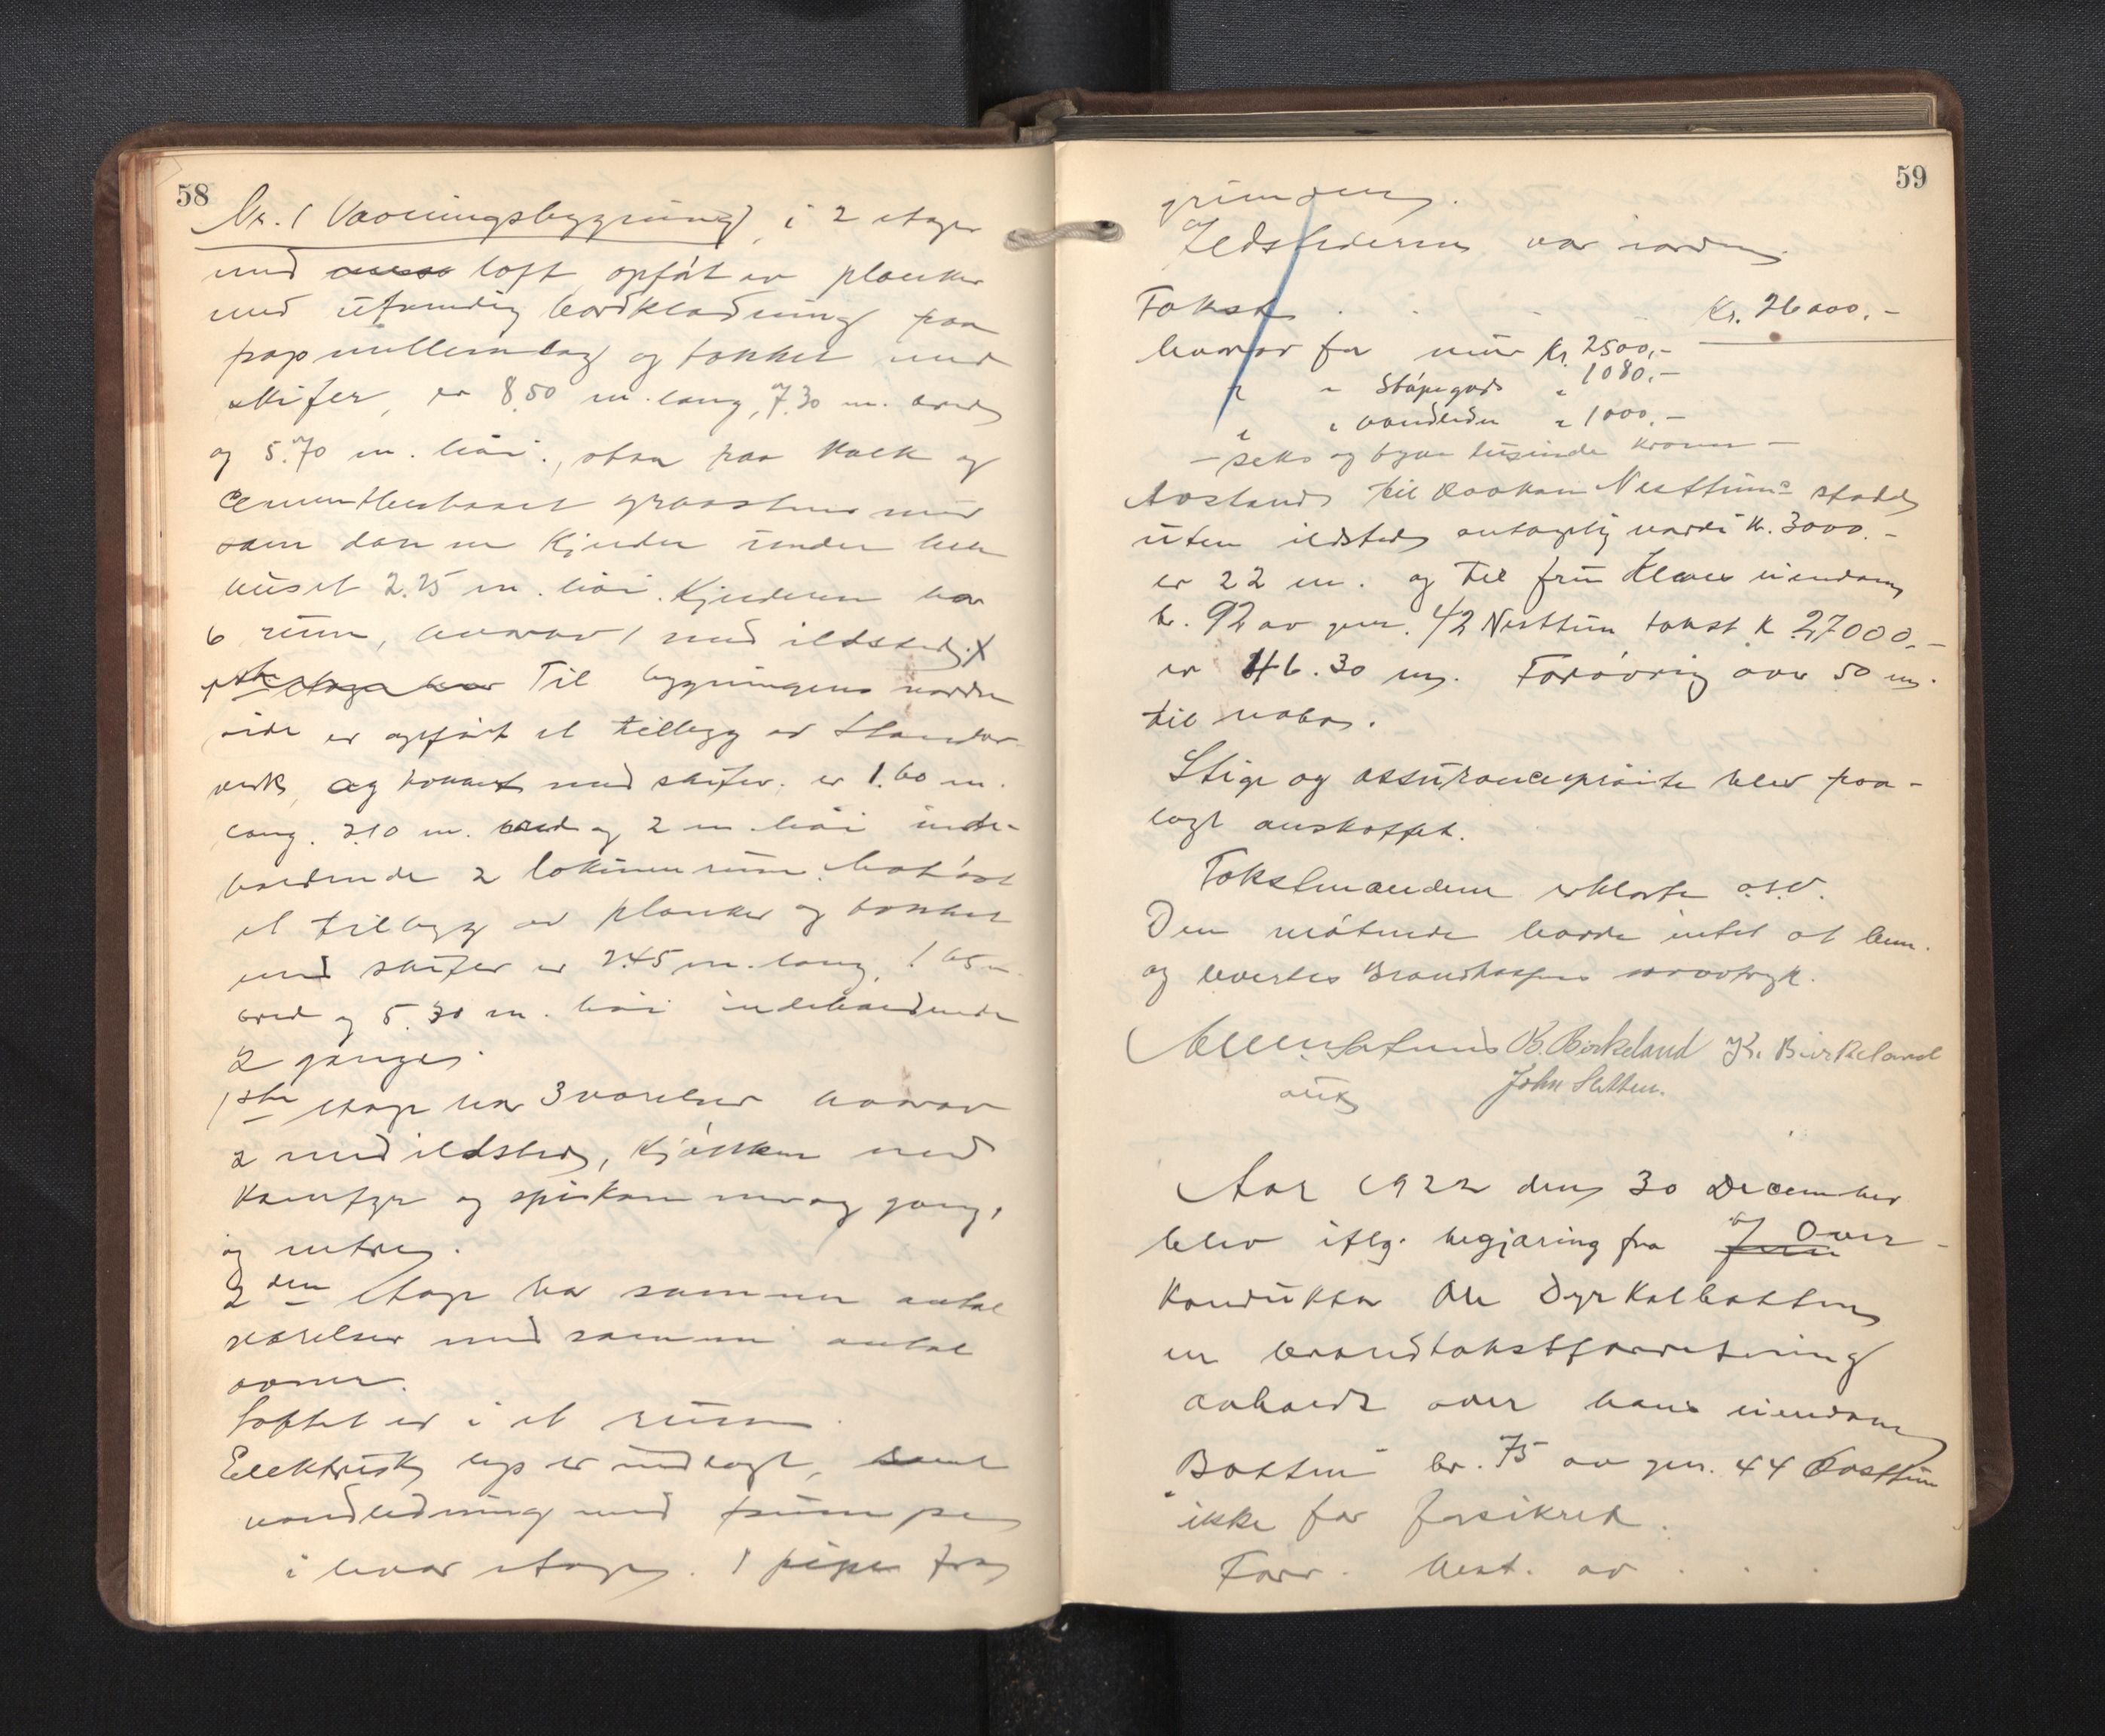 58
Nr. 1 Vaaningsbygning, i 2 etager
med loft, opført av planker
med utvendig bordklædning paa
papmellemlag og tækket med
skifer, er 8.50 m. lang, 7.30 m. bred
og 5.70 m. høi, staar paa kalk og
cementberbaret graastens mur
som danner kjelder under hele
huset 2.25 m. høi. Kjelderen har
6 rum, hvorav 1 med ildsted. X
1ste etage har Til bygningens nordre
side er opført et tillegg av stender-
verk, og tækket med skifer, er 1.60 m.
lang, 2.10 m. bred og 2 m. høi inde-
holdende 2 lokumrum.
et tillegg av planker og tækket
med skifer er 2.45 m. lang, 1.65 m.
bred og 5.30 m. høi indeholdende
2 ganger.
1ste etage har 3 værelser hvorav
2 med ildsted, kjøkken med
komfyr og spiskammer og gang,
og entre.
2den etage har samme antal
værelser med samme antal
ovner.
Loftet er i et rum.
Elektrisk lys er indlagt, samt
vandledning med pumpe
i hver etage. 1 pipe fra
59
grunden.
Ildstederne var i orden.
Takst . . . Kr. 26000.-
hvorav for mur Kr. 2500.-
" " Støpegods " 1080.-
" " vandleden " 1000.-
- seks og tyve tusinde kroner -
Avstand til Haakon Nesttuns stald
uten ildsted antagelig værdi kr. 3000.-
er 22 m. og til fru eiendom
br. 92 av gnr. 42 Nesttun takst k 27000.-
er 46.30 m. Forøvrig over 50 m.
til nabo.
Stige og assurancesprøite blev paa-
lagt anskaffet.
Takstmændene erklærte o.s.v.
Den møtende hadde intet at bem.
og levertes Brandkassens særavtryk.
B. Birkeland K. Birkeland
John Sletten.
Aar 1922 den 30 December
blev iflg. begjæring fra fru Over-
konduktør Ole Dyrkolbotten
en brandtakstforretning
avholdt over hans eiendom
"Botten" br. 75 av gnr. 44
ikke før forsikret.
Forr. best. av . . .